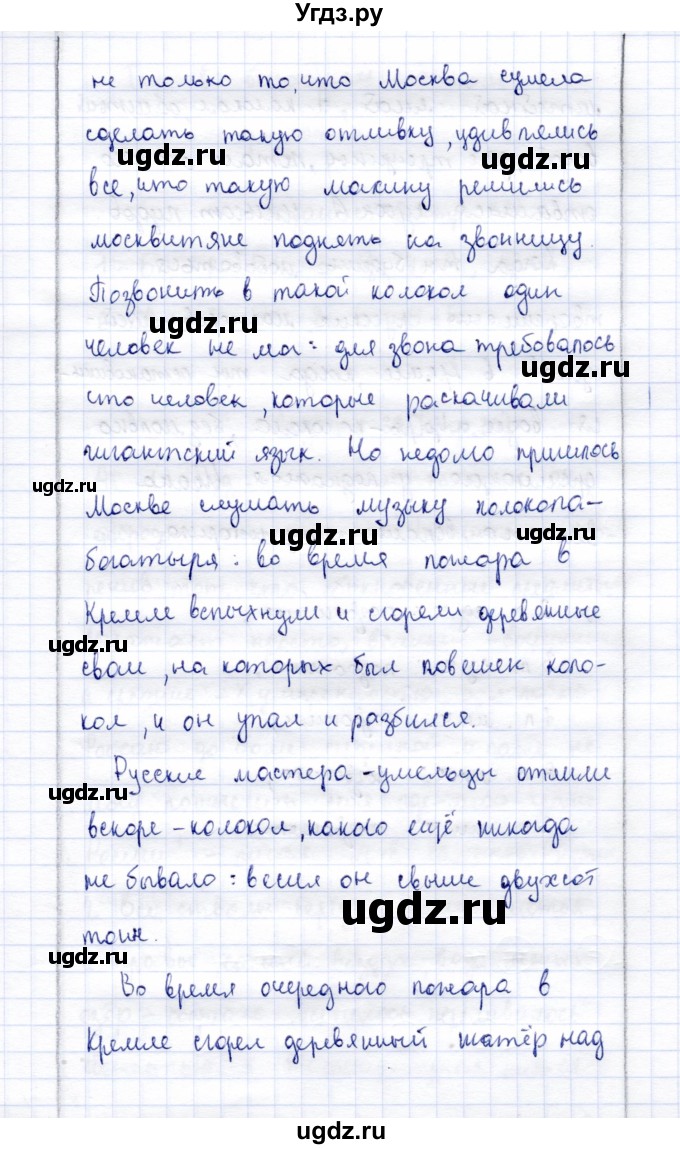 Угдз.ру
не только то, что Москва сумела
сделать такую отливку, удивлялись
ugdz.ru
ugdz.ru
все, что такую махину решились
москвитяне поднять на звонницу.
Позвонить в такой колокол один
ugdz.ru
человек не мог: для звона требовалось
ugdz.ru
сто человек, которые раскачивали
гигантский язык. Но недолго пришлось
ugdz.ru
Москве слушать музыку колокола-
ugdz.ru
богатыря: во время пожара в
Кремле вспыхнули и сгорели деревянные
ugdz.ru
сваи, на которых был повешен коло-
кол, и он упал и разбился.
Русские мастера-умельцы отлили
ugdz.ru
вскоре - колокол, какого ещё никогда
не бывало: весил он свыше двухсот
ugdz.ru
тонн.
ugdz.ru
Во время очередного пожара в
Кремле сгорел деревянный шатёр над
ugdz.ru